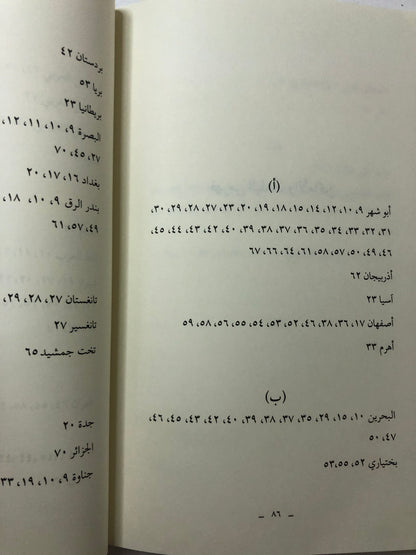 (أ)
أبو شهر ٩، ١٠، ١٢، ١٤، ١٥، ١٨، ١٩، ٢٠، ٢٣، ٢٧، ٢٨، ٢٩، ٣٠،
٣١، ٣٢، ٣٣، ٣٤، ٣٥، ٣٦، ٣٧، ٣٨، ٣٩، ٤٠، ٤٢، ٤٣، ٤٤، ٤٥،
٤٦، ٤٩، ٥٠، ٥٧، ٥٨، ٦١، ٦٤، ٦٦، ٦٧
أذربيجان ٦٢
آسيا ٢٣
أصفهان ١٧، ٣٦، ٣٨، ٤٦، ٥٢، ٥٣، ٥٤، ٥٥، ٥٦، ٥٨، ٥٩
أهرم ٣٣
(ب)
البحرين ١٠، ١٥، ٢٩، ٣٥، ٣٧، ٣٨، ٣٩، ٤٠، ٤٢، ٤٣، ٤٥، ٤٦،
٤٧، ٥٠
بختياري ٥٢، ٥٣،٥٥
– ٨٦ –
بردستان ٤٢
بريا ٥٣
بريطانيا ٢٣
البصرة ٩، ١٠، ١١، ١٢،
٢٧، ٤٥، ٧٠
بغداد ١٦، ١٧، ٢٠
بندر الرق ٩، ١٠، ١٨،
٤٩، ٥٧، ٦١
تانغستان ٢٧، ٢٨، ٢٩،
تانغسير ٢٧
تخت جمشيد ٦٥
جدة ٢٠
الجزائر ٧٠
جناوة ٩، ١٠، ١٩، ٣٣،